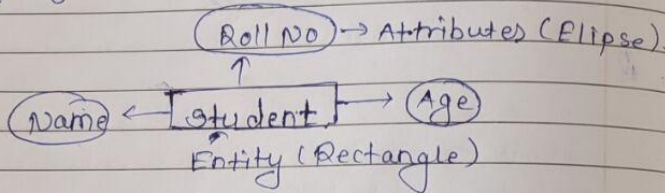 Roll No → Attributes (Elipse)
Name ← Student → Age
Entity (Rectangle)